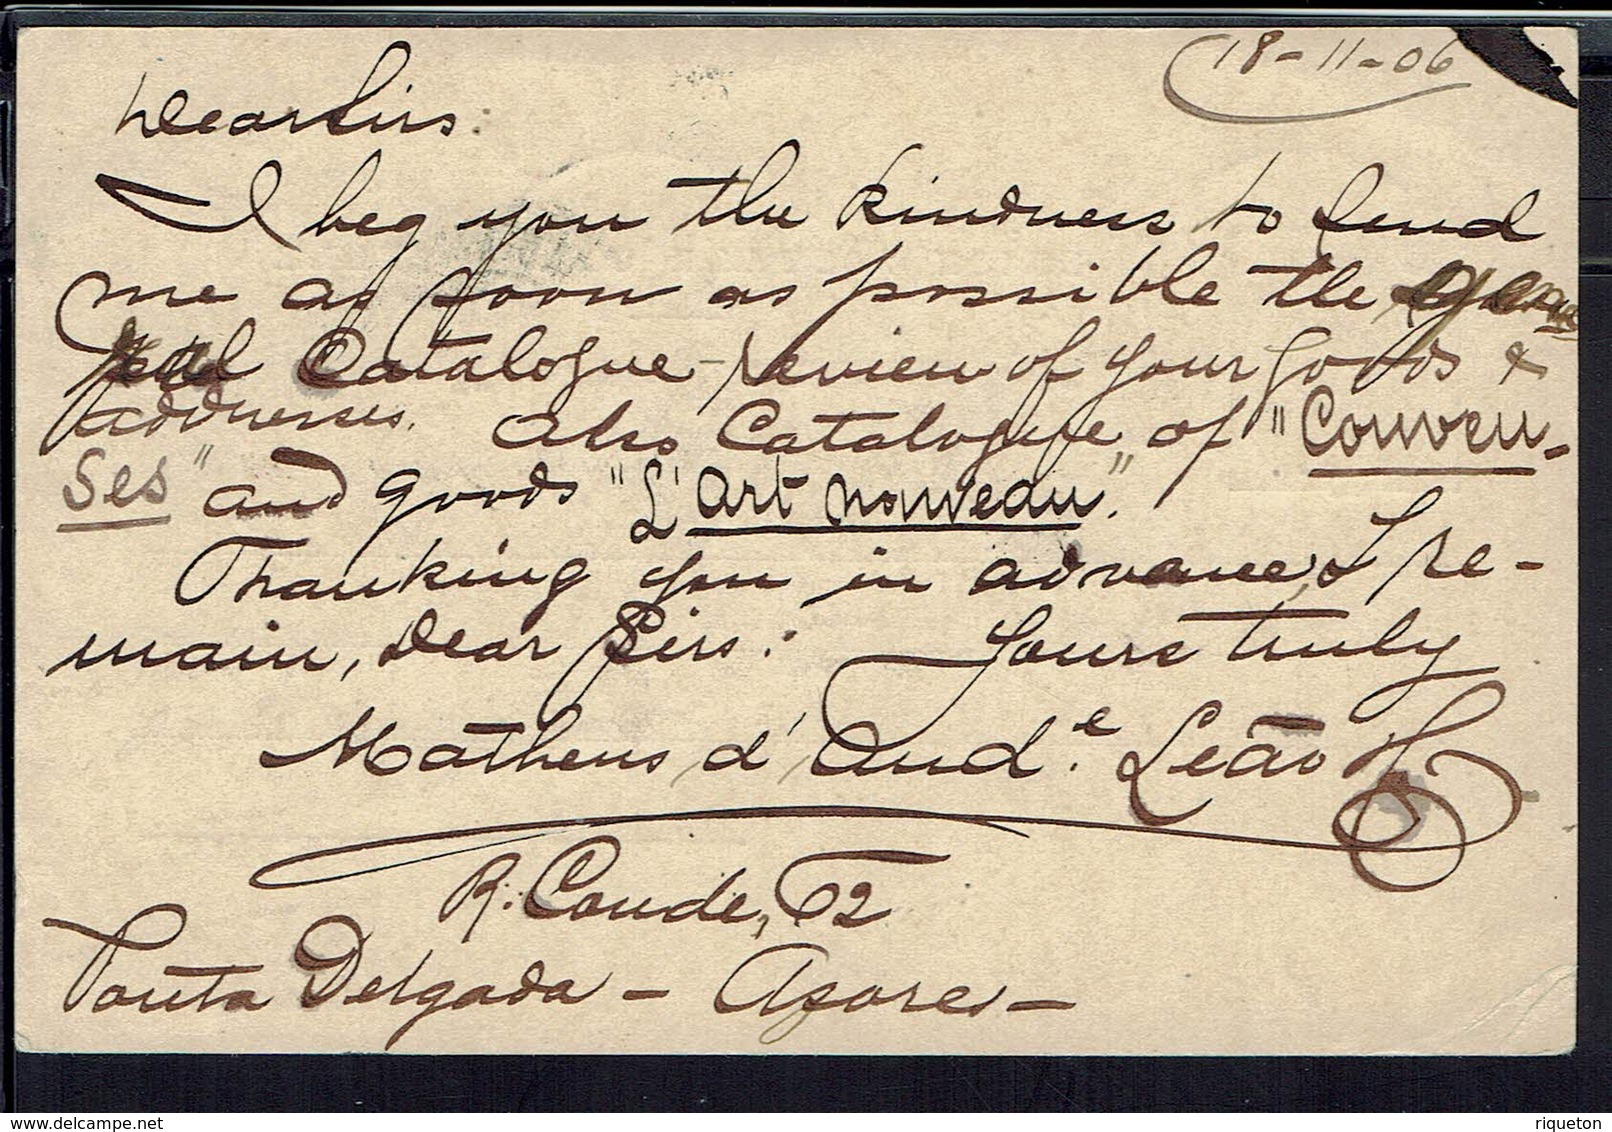 18-11-06
Dear Sirs:
I beg you the kindness to send
me as soon as possible the gene
ral Catalogue-review of your goods &
addresses. also Catalogue of "Couveu-
ses" and goods "L'art nouveau".
Thanking you in advance, I re-
main, Dear Sirs: Yours truly
Matheus d'And.e Leão
R. Conde, 62
Ponta Delgada - Açores -
www.delcampe.net
riqueton